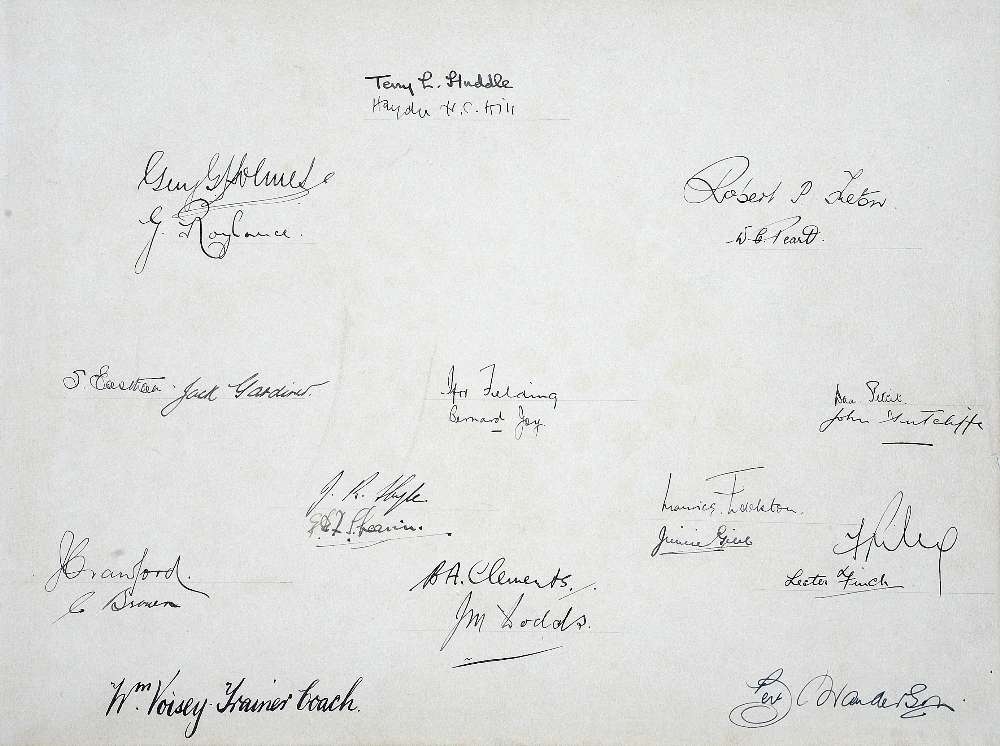 Terry L. Huddle
Haydn H.C. Hill
Guy G Holmes
G. Roylance.
Robert P
W.C. Peart.
S. Eastham. Jack Gardiner.
Fielding
Bernard Joy.
Dan Pettit.
John Sutcliffe
J. R.
Shearer.
Maurice Edelston.
Jimmie Gibb
J Crawford.
C Brown
B A. Clements.
J M Dodds.
Lester Finch
Wm Voisey Trainer Coach.